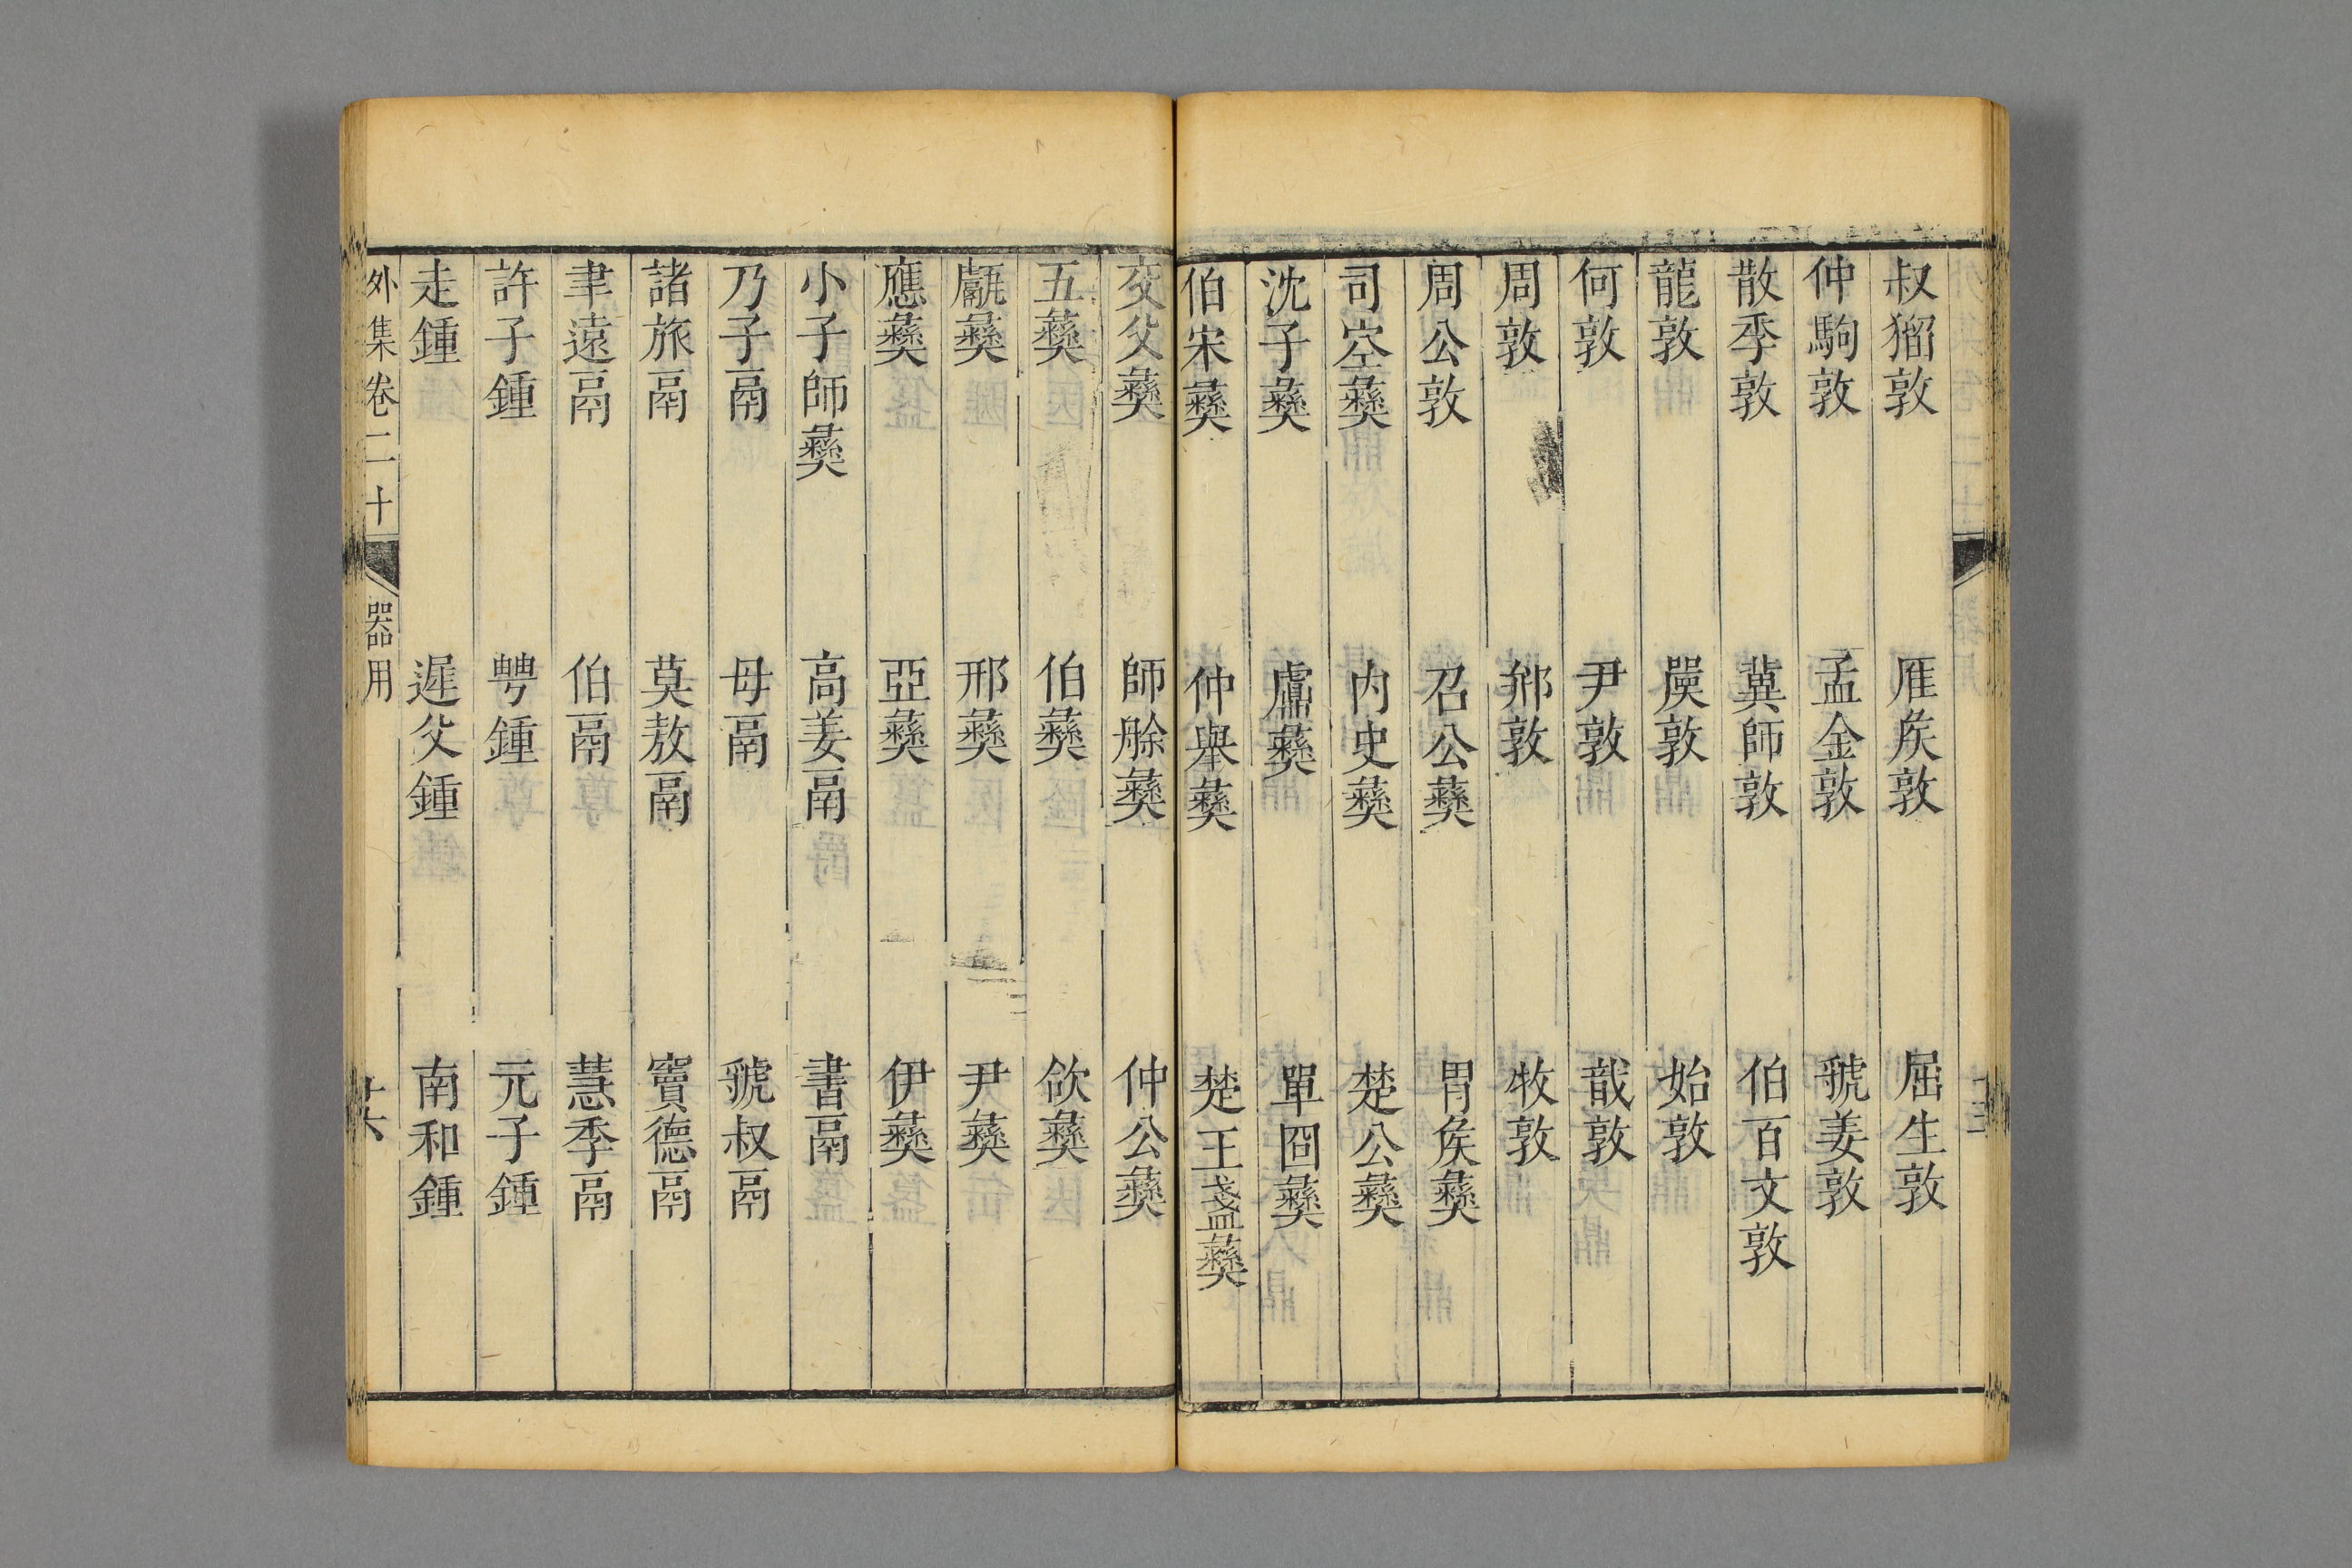 叔㺉敦 雁矦敦 屈生敦
仲駒敦 孟金敦 虢姜敦
散季敦 冀師敦 伯百文敦
龍敦 敦 始敦
何敦 尹敦 敦
周敦 敦 牧敦
周公敦 召公彝 胃矦彝
司空彝 内史彝 楚公彝
沈子彝 彝 單囧彝
伯宋彝 仲舉彝 楚王盞彝
交父彝 師艅彝 仲公彝
五彝 伯彝 欱彝
彝 邢彝 尹彝
應彝 亞彝 伊彝
小子師彝 高姜鬲 書鬲
乃子鬲 母鬲 虢叔鬲
諸旅鬲 莫敖鬲 竇德鬲
聿遠鬲 伯鬲 慧季鬲
許子鍾 鍾 元子鍾
走鍾 遲父鍾 南和鍾
外集卷二十 器用